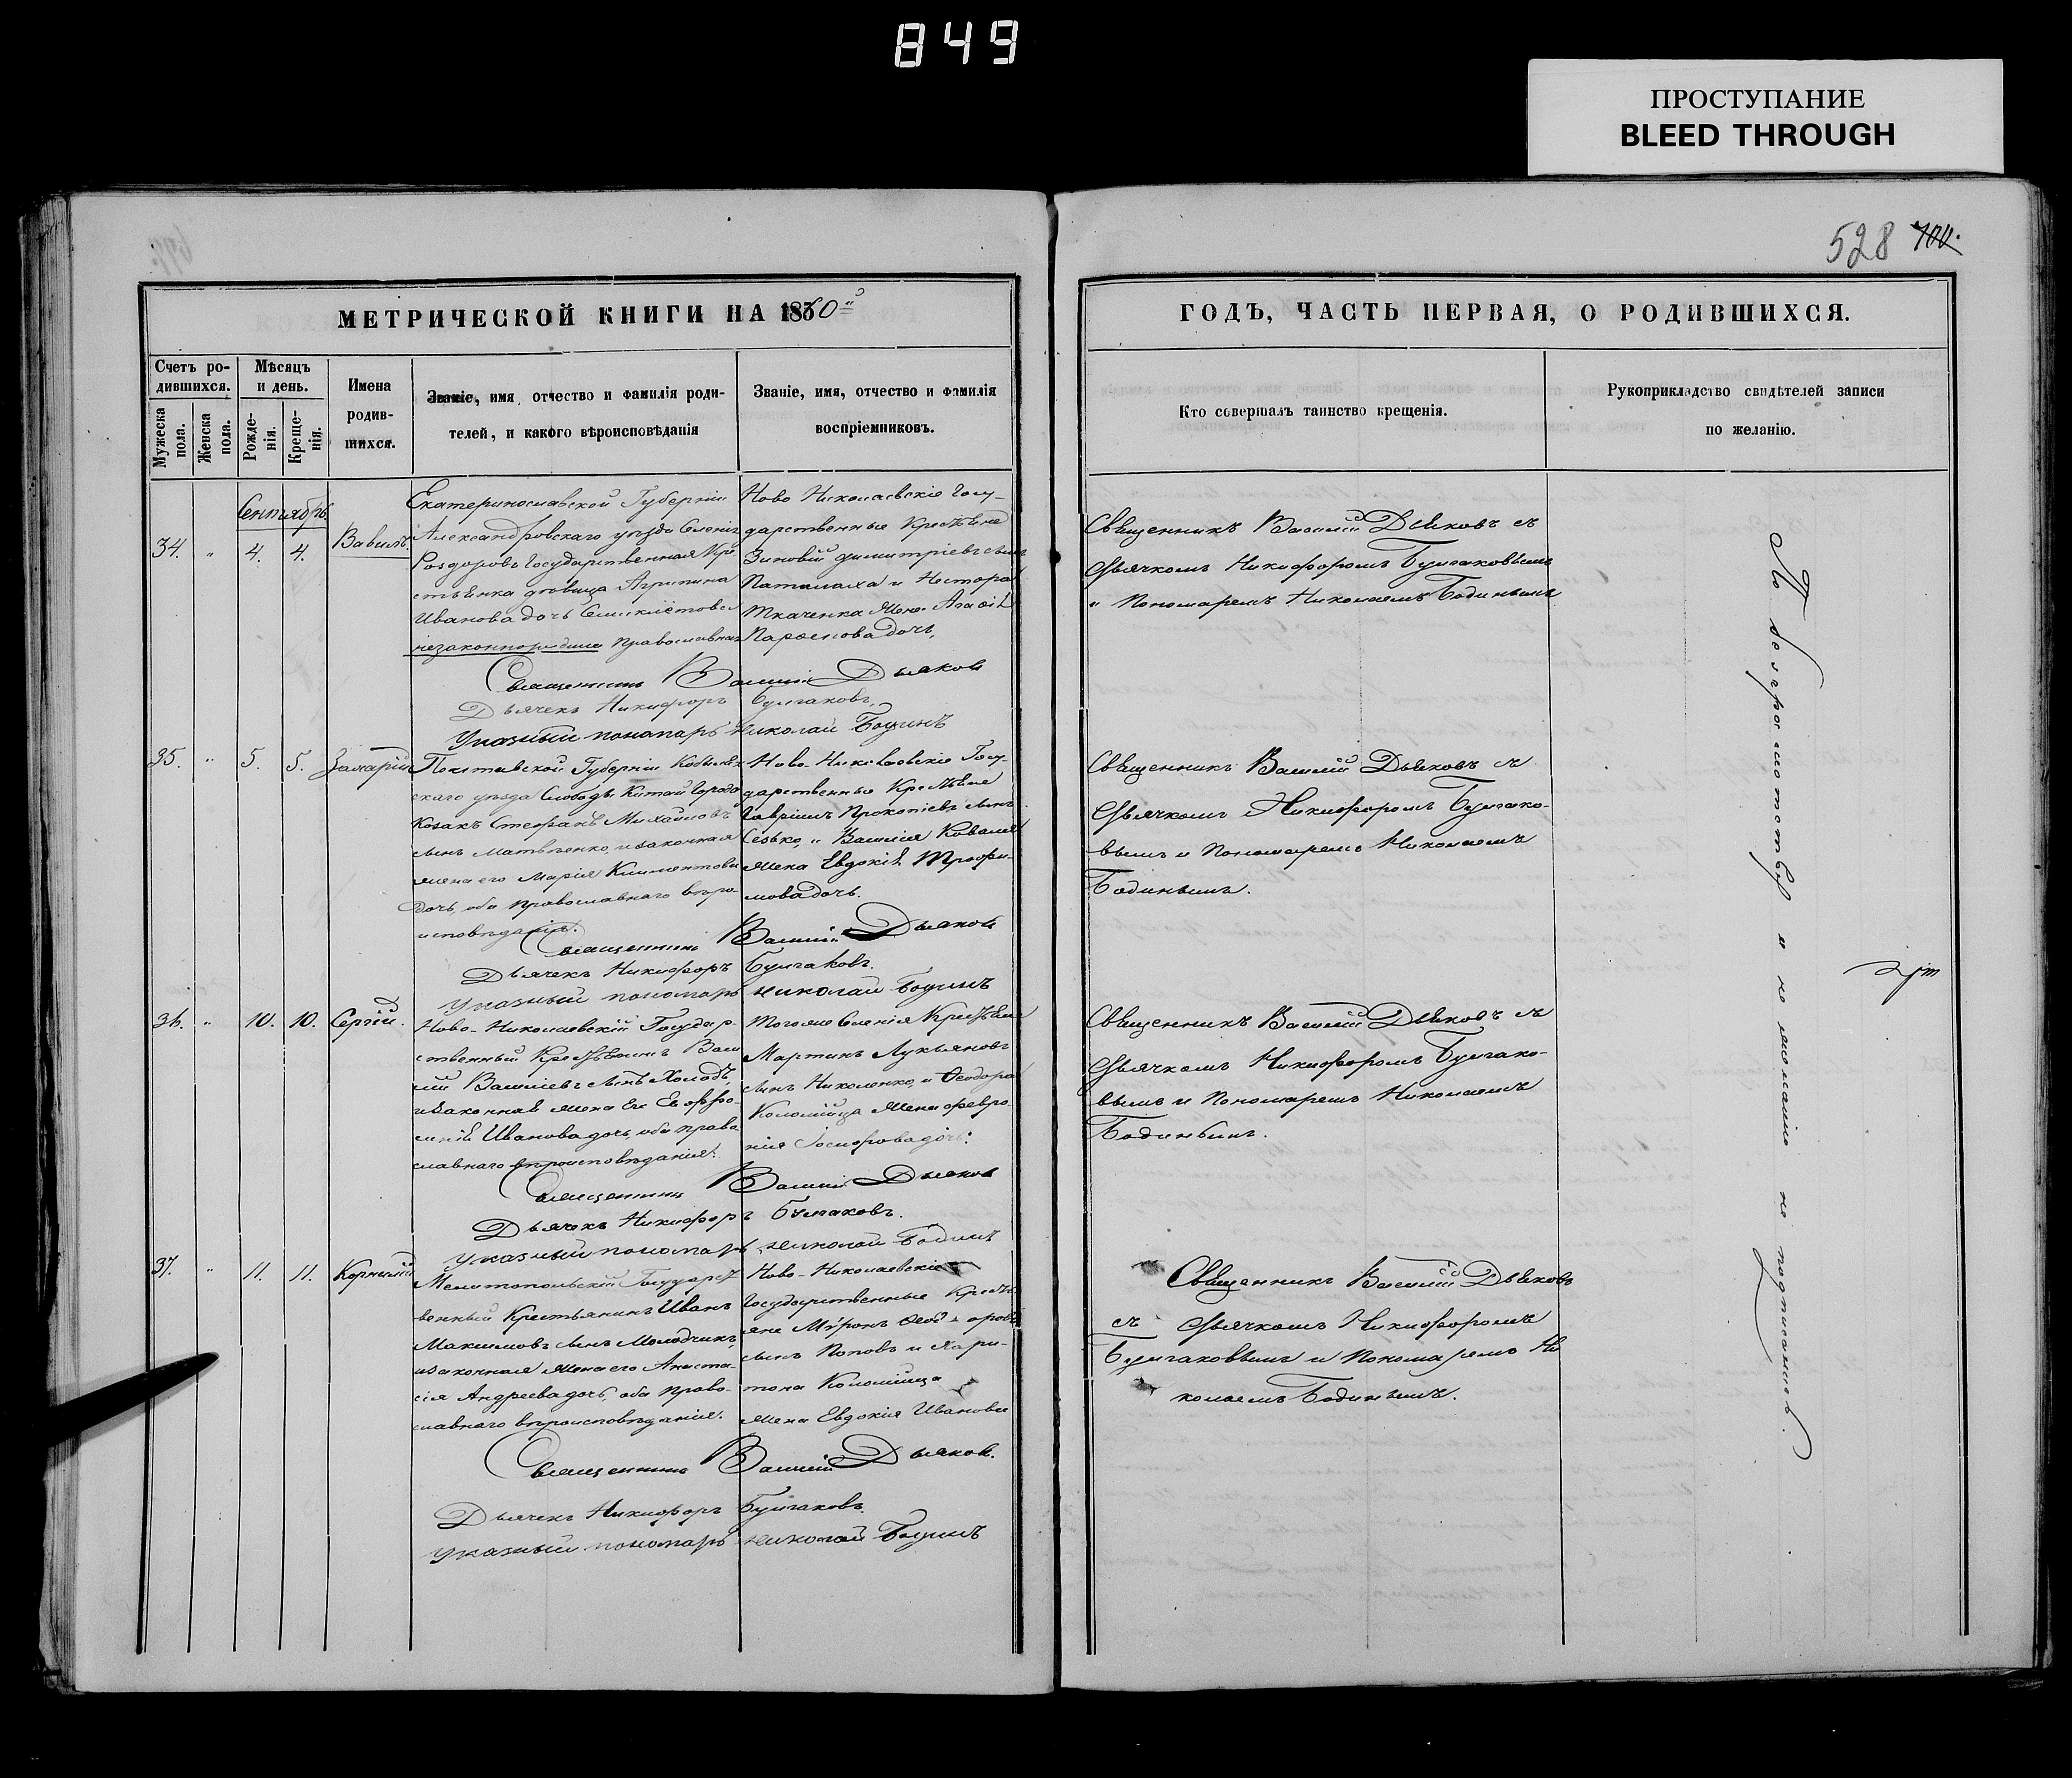 849
ПРОСТУПАНИЕ
BLEED THROUGH
528 700.
МЕТРИЧЕСКОЙ КНИГИ НА 1860й
ГОДЪ, ЧАСТЬ ПЕРВАЯ, О РОДИВШИХСЯ.
Счетъ ро-
дившихся.
Мужеска
пола.
Женска
пола.
Мѣсяцъ
и день.
Рожде-
нія.
Креще-
нія.
Имена
родив-
шихся.
Званіе, имя, отчество и фамилія роди-
телей, и какого вѣроисповѣданія
Званіе, имя, отчество и фамилія
воспріемниковъ.
Кто совершалъ таинство крещенія.
Рукоприкладство свидѣтелей записи
по желанію.
Сентябрь
34. " 4. 4. Вавилъ.
Екатеринославской Губерніи
Александровскаго уѣзда Селенія
Роздоровъ Государственная Кре
стьянка дѣвица Агрипина
Иванова дочь
незаконнорожд. Православная
Ново Николаевскіе Госу-
дарственные Крестьяне
Зиновій Димитріевъ сынъ
Паталаха и Нестора
Ткаченка жена Агафія
Парѳенова дочь,
Священникъ Василій Дьяковъ съ
дьячкомъ Никифоромъ Булгаковымъ
и Пономаремъ Николаемъ Бодинымъ
Священникъ Василій Дьяковъ
Дьячекъ Никифоръ Булгаковъ,
Указный пономарь Николай Бодинъ
35. " 5. 5. Захарій
Полтавской Губерніи Кобыляк
скаго уѣзда Слободы Китай города
Козакъ Стефанъ Михайловъ
сынъ Матвѣенко, и законная
жена его Марія Климентова
дочь, оба православнаго вѣро-
исповѣданія.
Ново-Николаевскіе Госу-
дарственные Крестьяне
Гавріилъ Прокопіевъ сынъ
Сеько, и Василія Коваля
жена Евдокія Трофи-
мова дочь.
Священникъ Василій Дьяковъ съ
дьячкомъ Никифоромъ Булгако-
вымъ и Пономаремъ Николаемъ
Бодинымъ.
Священникъ Василій Дьяковъ
Дьячекъ Никифоръ Булгаковъ.
Указный пономарь Николай Бодинъ
36. " 10. 10. Сергій.
Ново-Николаевскій Государ-
ственный Крестьянинъ Васи
лій Василіевъ сынъ Холодъ,
и законная жена его Евфро-
синія Иванова дочь, оба право
славнаго вѣроисповѣданія.
Тогоже Селенія Крестьяне
Мартинъ Лукьяновъ
сынъ Николенко, и Ѳеодора
Коломійца жена Февро-
нія дочь.
Священникъ Василій Дьяковъ съ
дьячкомъ Никифоромъ Булгако-
вымъ и Пономаремъ Николаемъ
Бодинымъ.
Священникъ Василій Дьяковъ
Дьячекъ Никифоръ Булгаковъ.
Указный пономарь Николай Бодинъ
37. " 11. 11. Корнилій
Мелитопольскій Государст
венный Крестьянинъ Иванъ
Максимовъ сынъ Молодчикъ,
и законная жена его Анаста-
сія Андреева дочь, оба право-
славнаго вѣроисповѣданія.
Ново-Николаевскіе
Государственные Кресть
яне Миронъ Ѳеодоровъ
сынъ Поповъ и Хари-
тона Коломійца
жена Евдокія Иванова
Священникъ Василій Дьяковъ
съ дьячкомъ Никифоромъ
Булгаковымъ и Пономаремъ Ни
колаемъ Бодинымъ.
Священникъ Василій Дьяковъ.
Дьячекъ Никифоръ Булгаковъ.
Указный пономарь Николай Бодинъ
По безграмотству и не желанію не подписались.